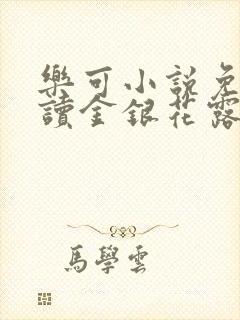 樂可小說免
讀金銀花露
馬學雲